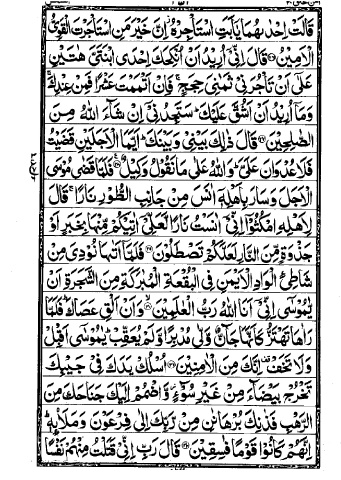 قَالَتْ اِحْدٰىهُمَا يٰۤاَبَتِ اسْتَاْجِرْهُ اِنَّ خَيْرَ مَنِ اسْتَاْجَرْتَ الْقَوِىُّ
الْاَمِيْنُ ﴿۲۶﴾ قَالَ اِنِّىْۤ اُرِيْدُ اَنْ اُنْكِحَكَ اِحْدَى ابْنَتَىَّ هٰتَيْنِ
عَلٰٓى اَنْ تَاْجُرَنِىْ ثَمٰنِىَ حِجَجٍ ۚ فَاِنْ اَتْمَمْتَ عَشْرًا فَمِنْ عِنْدِكَ ۚ
وَمَاۤ اُرِيْدُ اَنْ اَشُقَّ عَلَيْكَ ؕ سَتَجِدُنِىْۤ اِنْ شَآءَ اللّٰهُ مِنَ
الصّٰلِحِيْنَ ﴿۲۷﴾ قَالَ ذٰلِكَ بَيْنِىْ وَبَيْنَكَ ؕ اَيَّمَا الْاَجَلَيْنِ قَضَيْتُ
فَلَا عُدْوَانَ عَلَىَّ ؕ وَاللّٰهُ عَلٰى مَا نَقُوْلُ وَكِيْلٌ ﴿۲۸﴾ فَلَمَّا قَضٰى مُوْسَى
الْاَجَلَ وَسَارَ بِاَهْلِهٖۤ اٰنَسَ مِنْ جَانِبِ الطُّوْرِ نَارًا ۚ قَالَ
لِاَهْلِهِ امْكُثُوْۤا اِنِّىْۤ اٰنَسْتُ نَارًا لَّعَلِّىْۤ اٰتِيْكُمْ مِّنْهَا بِخَبَرٍ اَوْ
جَذْوَةٍ مِّنَ النَّارِ لَعَلَّكُمْ تَصْطَلُوْنَ ﴿۲۹﴾ فَلَمَّاۤ اَتٰىهَا نُوْدِىَ مِنْ
شَاطِئِ الْوَادِ الْاَيْمَنِ فِى الْبُقْعَةِ الْمُبٰرَكَةِ مِنَ الشَّجَرَةِ اَنْ
يّٰمُوْسٰۤى اِنِّىْۤ اَنَا اللّٰهُ رَبُّ الْعٰلَمِيْنَ ﴿۳۰﴾ وَاَنْ اَلْقِ عَصَاكَ ؕ فَلَمَّا
رَاٰهَا تَهْتَزُّ كَاَنَّهَا جَآنٌّ وَّلّٰى مُدْبِرًا وَّلَمْ يُعَقِّبْ ؕ يٰمُوْسٰۤى اَقْبِلْ
وَلَا تَخَفْ ۫ اِنَّكَ مِنَ الْاٰمِنِيْنَ ﴿۳۱﴾ اُسْلُكْ يَدَكَ فِىْ جَيْبِكَ
تَخْرُجْ بَيْضَآءَ مِنْ غَيْرِ سُوْٓءٍ ۫ وَّاضْمُمْ اِلَيْكَ جَنَاحَكَ مِنَ
الرَّهْبِ فَذٰنِكَ بُرْهَانٰنِ مِنْ رَّبِّكَ اِلٰى فِرْعَوْنَ وَمَلَا۟ئِهٖ ؕ
اِنَّهُمْ كَانُوْا قَوْمًا فٰسِقِيْنَ ﴿۳۲﴾ قَالَ رَبِّ اِنِّىْ قَتَلْتُ مِنْهُمْ نَفْسًا